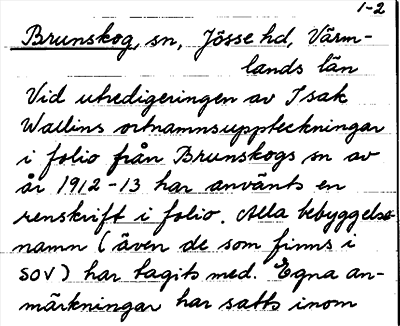 1-2
Brunskog, sn, Jösse hd, Värm-
lands län
Vid utredigeringen av Isak
Wallins ortnamnsuppteckningar
i folio från Brunskogs sn av
år 1912-13 har använts en
renskrift i folio. Alla bebyggelse-
namn (även de som finns i
SOV) har tagits med. Egna an-
märkningar har satts inom